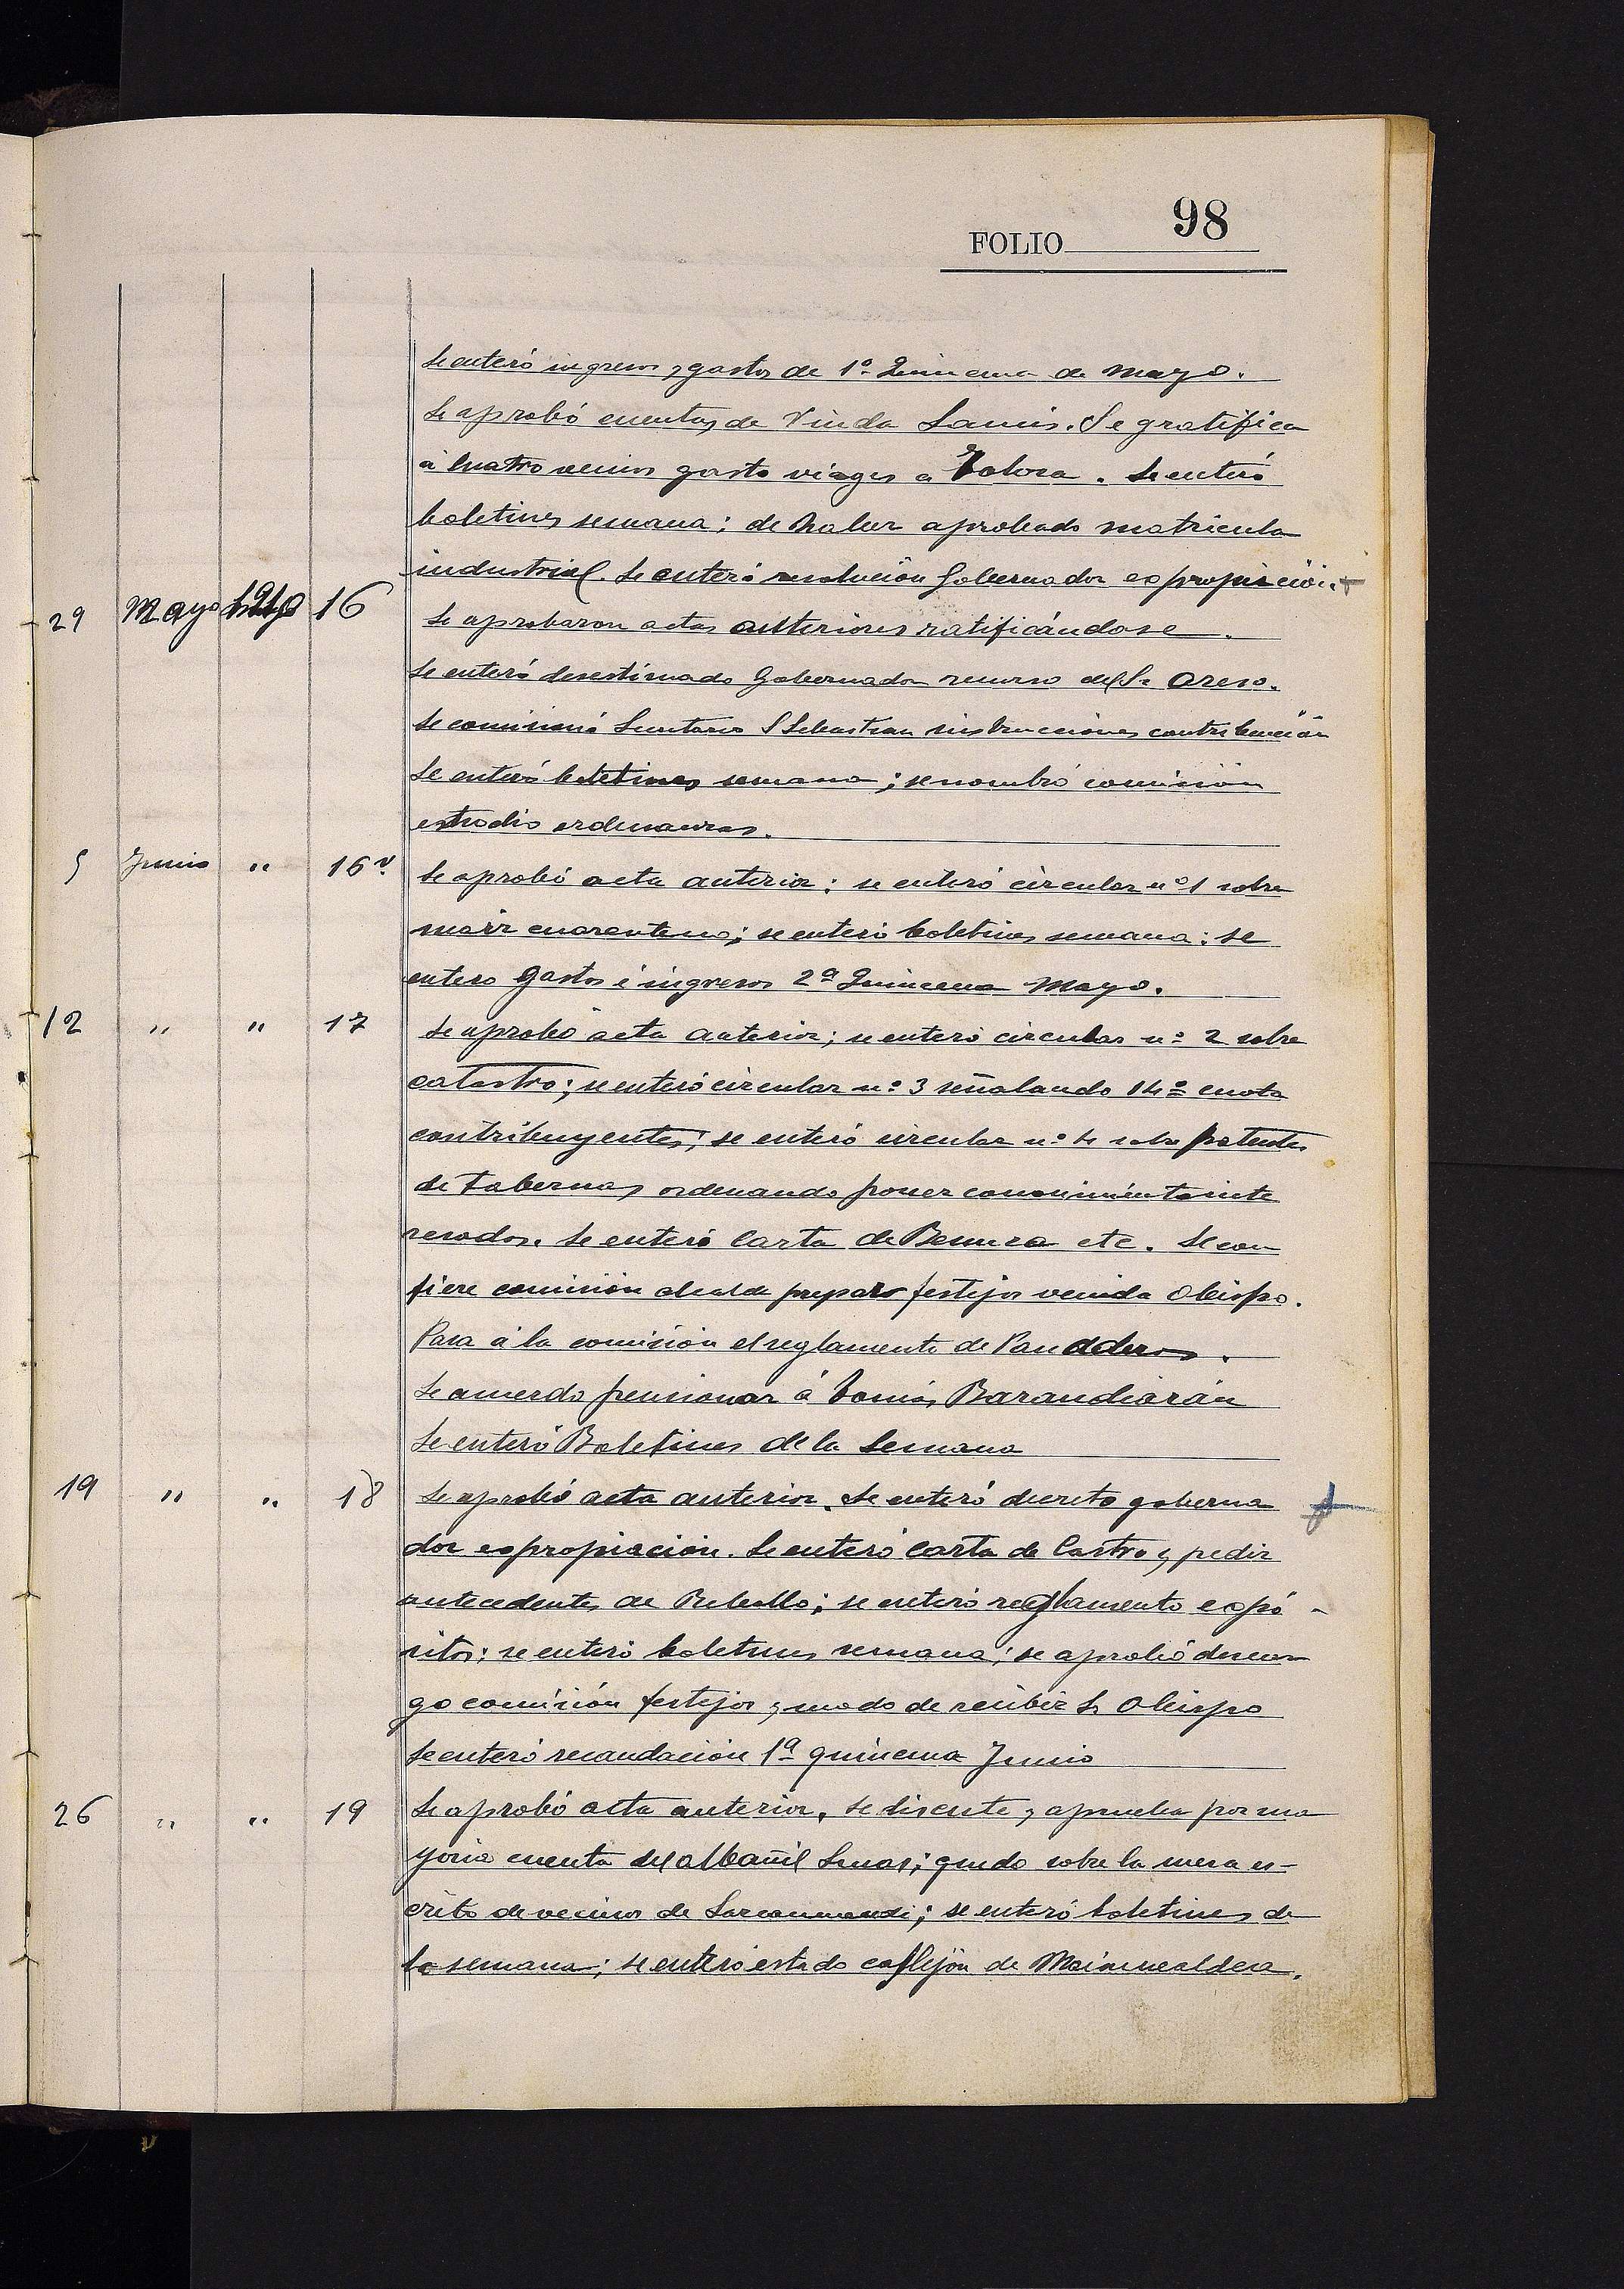 98
FOLIO
Se enteró ingresos y gastos de 1ª Quincena de Mayo.
Se aprobó cuentas de Viuda. Se gratifica
á cuatro vecinos gasto viages a Tolosa. Se enteró
boletines semana: de haber aprobado matricula
industrial. Se enteró resolución Gobernador expropiación.
29 Mayo 16 Se aprobaron actas anteriores ratificándose.
Se enteró desestimado Gobernador recurso del Sr Oreso.
Se comisionó Secretario S Sebastian instrucciones contribución
Se enteró boletines semana; se nombró comisión
estudio ordenanzas.
5 Junio " 16 v. Se aprobó acta anterior: se enteró circular nº 1 sobre
maiz; se enteró boletines semana: se
entero gastos é ingresos 2ª Quincena Mayo.
12 " " 17 Se aprobó acta anterior; se enteró circular nº 2 sobre
catastro; se enteró circular nº 3 señalando 14ª cuota
contribuyentes; se enteró circular nº 4 sobre patentes
de Tabernas ordenando poner conocimiento inte
resados. Se enteró carta de etc. Se con
fiere comisión alcalde preparar festejos venida Obispo.
Pasa á la comisión el reglamento de Panaderos.
Se acuerda pensionar á Tomás Barandiarán
Se enteró Boletines de la Semana
19 " " 18 Se aprobó acta anterior. Se enteró decreto goberna
dor expropiación. Se enteró carta de Castro y pedir
antecedentes de Rebollo; se enteró reglamento expó-
sitos: se enteró boletines semana; se aprobó descar
go comisión festejos y modo de recibir Sr Obispo
Se enteró recaudación 1ª quincena Junio
26 " " 19 Se aprobó acta anterior. Se discute y aprueba por ma
yoria cuenta del albañil; quedo sobre la mesa es-
crito de vecinos de; se enteró boletines de
la semana; se enteró estado callejón de